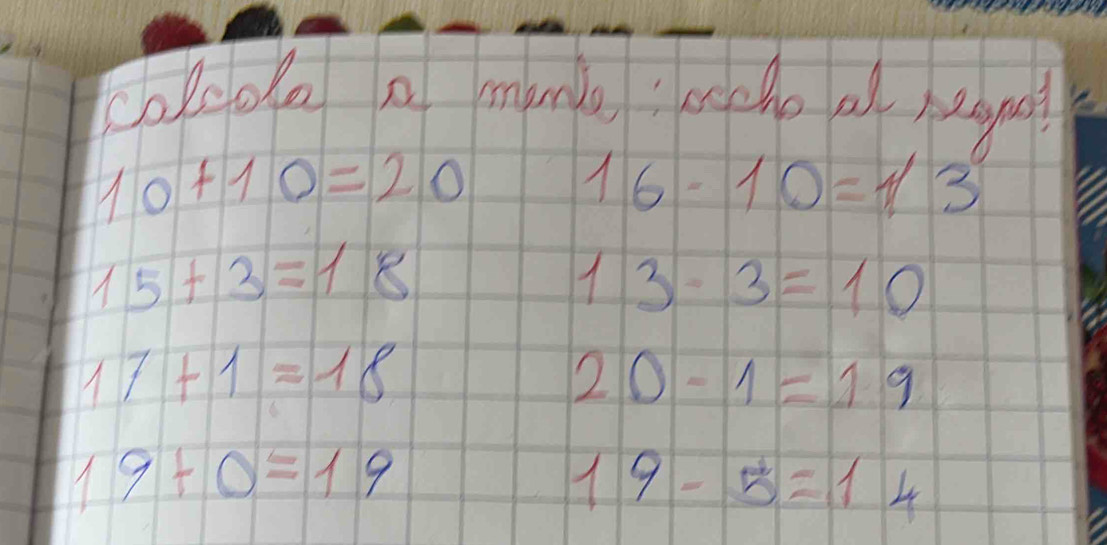 Calcola a mente: occho al segno!
10+10=20 16-10=13
15+3=18 13-3=10
17+1=18 20-1=19
19+0=19 19-5=14